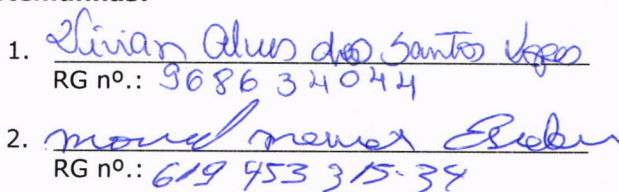 1. Vivian Alves dos Santos Lopes
RG nº.: 9686 34044
2.
RG nº.: 619 453 315-34